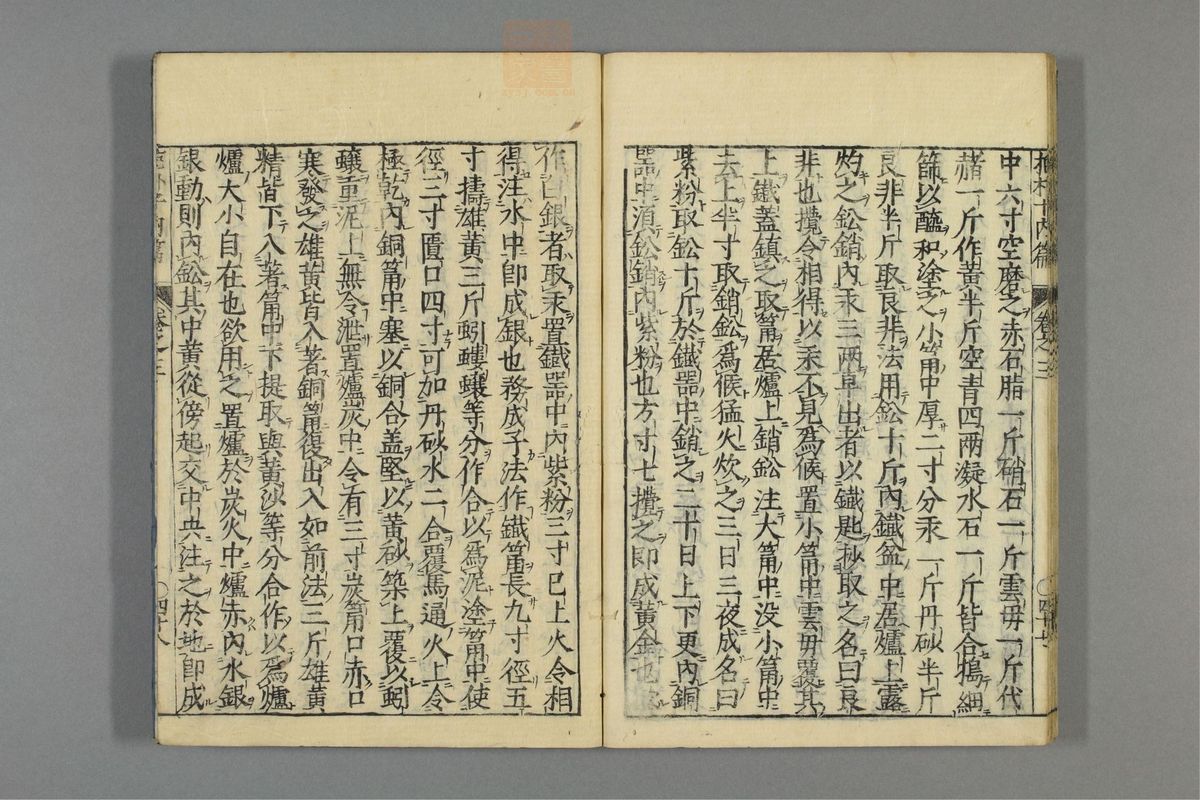 抱朴子内篇 卷之三 〇四十七
中六寸空磨之赤石脂一斤硝石一斤雲母一斤代
赭一斤作黃半斤空青四兩凝水石一斤皆合鴇細
篩以醯和塗之小筩中厚二寸分汞一斤丹砂半斤
良非半斤取良非法用鈆十斤内鐵盆中居爐上露
灼之鈆銷内汞三兩早出者以鐵匙抄取之名曰良
非也攪令相得以汞不見爲候置小筩中雲母覆其
上鐵蓋鎮之取筩居爐上銷鈆注大筩中没小筩中
去上半寸取銷鈆爲候猛火炊之三日三夜成名曰
紫粉取鈆十斤於鐵器中銷之二十日上下更内銅
器中湏鈆銷内紫粉也方寸七攪之即成黃金也
作白銀者取汞置鐵器中内紫粉三寸已上火令相
得注水中即成銀也務成子法作鐵筩長九寸徑五
寸擣雄黃三斤蚓螻蠰等分作合以爲泥塗筩中使
徑三寸匱口四寸可加丹砂水二合覆馬通火上令
極乾内銅筩中塞以銅合盖堅以黃砂築上覆以蚓
蠰重泥上無令泄置爐炭中令有三寸炭筩口赤口
寒發之雄黃皆入著銅筩復出入如前法三斤雄黃
精皆下入著筩中下提取與黃沙等分合作以爲爐
爐大小自在也欲用之置爐於炭火中爐赤内水銀
銀動則内鈆其中黃從傍起交中央注之於地即成
抱朴子内篇 卷之三 〇四十八